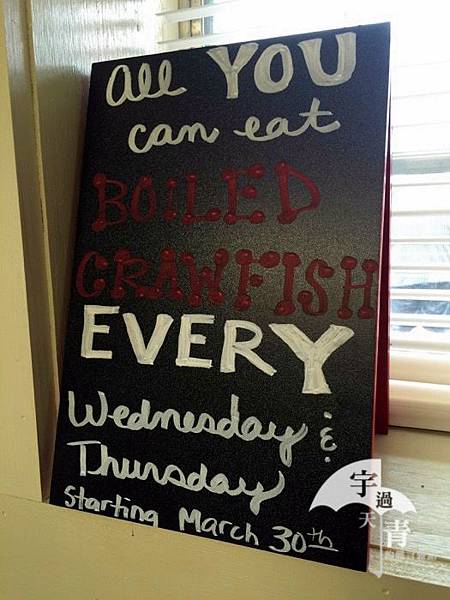 all YOU
can eat
BOILED
CRAWFISH
EVERY
Wednesday &
Thursday
Starting March 30th
宇過
天青